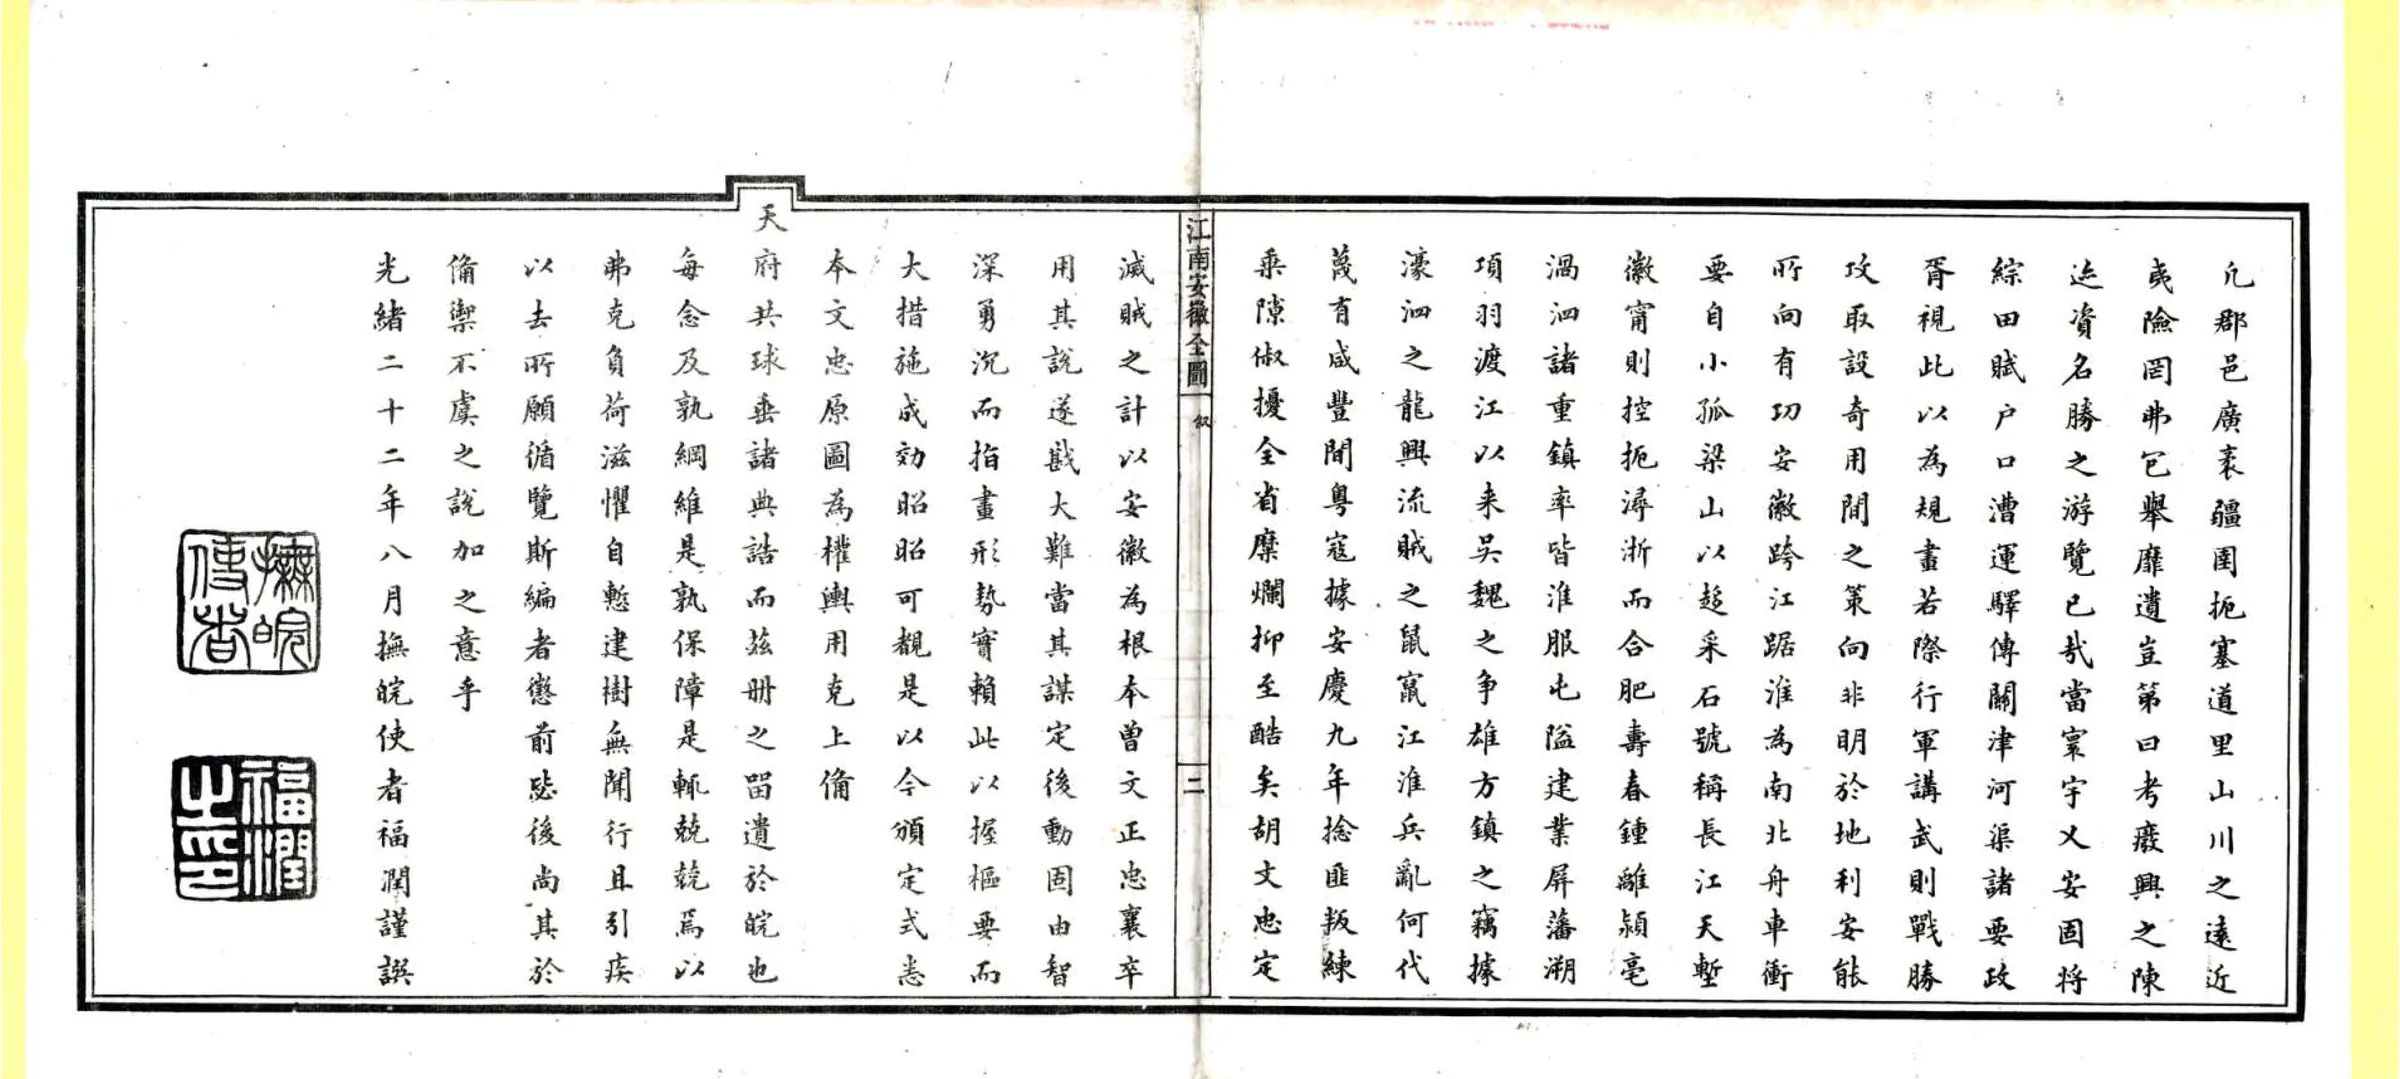 凡郡邑廣袤疆圉扼塞道里山川之遠近
夷險罔弗包舉靡遺豈第曰考廢興之陳
迹資名勝之游覽已哉當寰宇乂安固將
綜田賦户口漕運驛傳關津河渠諸要政
胥視此以為規畫若際行軍講武則戰勝
攻取設奇用間之策向非明於地利安能
所向有功安徽跨江踞淮為南北舟車衝
要自小孤梁山以趍采石號稱長江天塹
徽甯則控扼潯浙而合肥壽春鍾離潁亳
渦泗諸重鎮率皆淮服屯隘建業屏藩溯
項羽渡江以来吳魏之争雄方鎮之竊據
濠泗之龍興流賊之鼠竄江淮兵亂何代
蔑有咸豐間粤寇據安慶九年捻匪叛練
乗隙俶擾全省糜爛抑至酷矣胡文忠定
江南安徽全圖
叙
二
滅賊之計以安徽為根本曾文正忠襄卒
用其説遂戡大難當其謀定後動固由智
深勇沉而指畫形勢實賴此以握樞要而
大措施成効昭昭可覩是以今頒定式悉
本文忠原圖為權輿用克上備
天府共球垂諸典誥而茲冊之留遺於皖也
每念及孰綱維是孰保障是輒兢兢焉以
弗克負荷滋懼自慙建樹無聞行且引疾
以去所願循覽斯編者懲前毖後尚其於
備禦不虞之説加之意乎
光緒二十二年八月撫皖使者福潤謹譔
撫皖使者
福潤之印